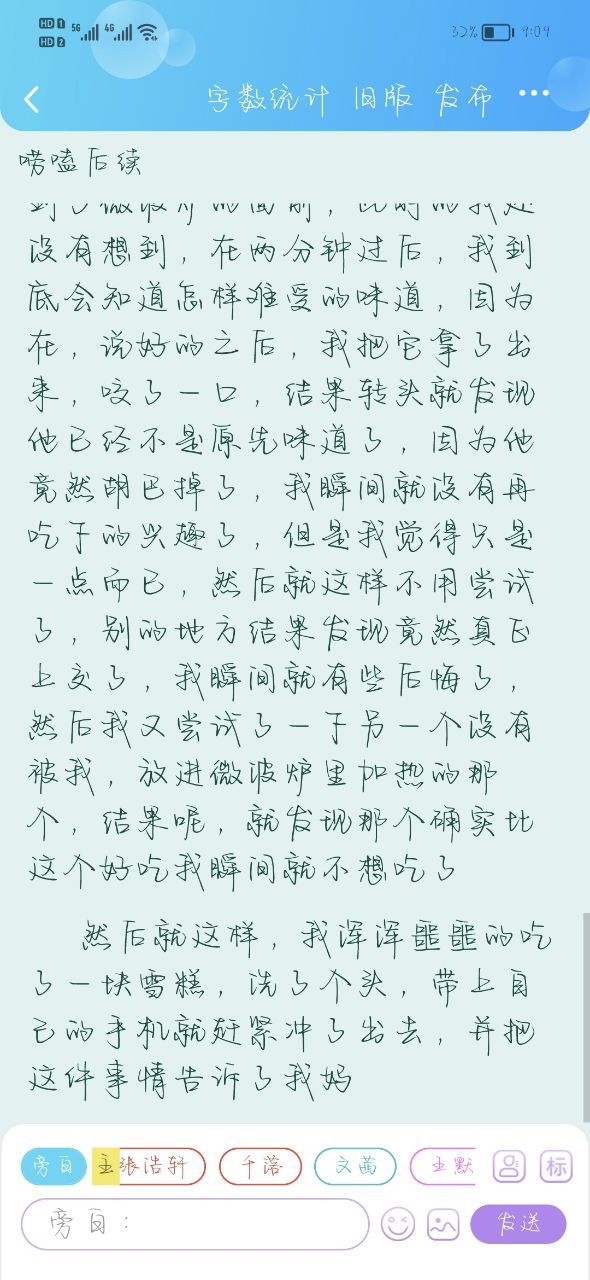 HD 1 5G 4G
HD 2
32% 9:09
字数统计 旧版 发布
唠嗑后续
没有想到，在两分钟过后，我到
底会知道怎样难受的味道，因为
在，说好的之后，我把它拿了出
来，咬了一口，结果转头就发现
他已经不是原先味道了，因为他
竟然胡巴掉了，我瞬间就没有再
吃下的兴趣了，但是我觉得只是
一点而已，然后就这样不用尝试
了，别的地方结果发现竟然真正
上交了，我瞬间就有些后悔了，
然后我又尝试了一下另一个没有
被我，放进微波炉里加热的那
个，结果呢，就发现那个确实比
这个好吃我瞬间就不想吃了
然后就这样，我浑浑噩噩的吃
了一块雪糕，洗了个头，带上自
己的手机就赶紧冲了出去，并把
这件事情告诉了我妈
旁白 主 张浩轩 千落 文茜 王默 标
旁白：
发送